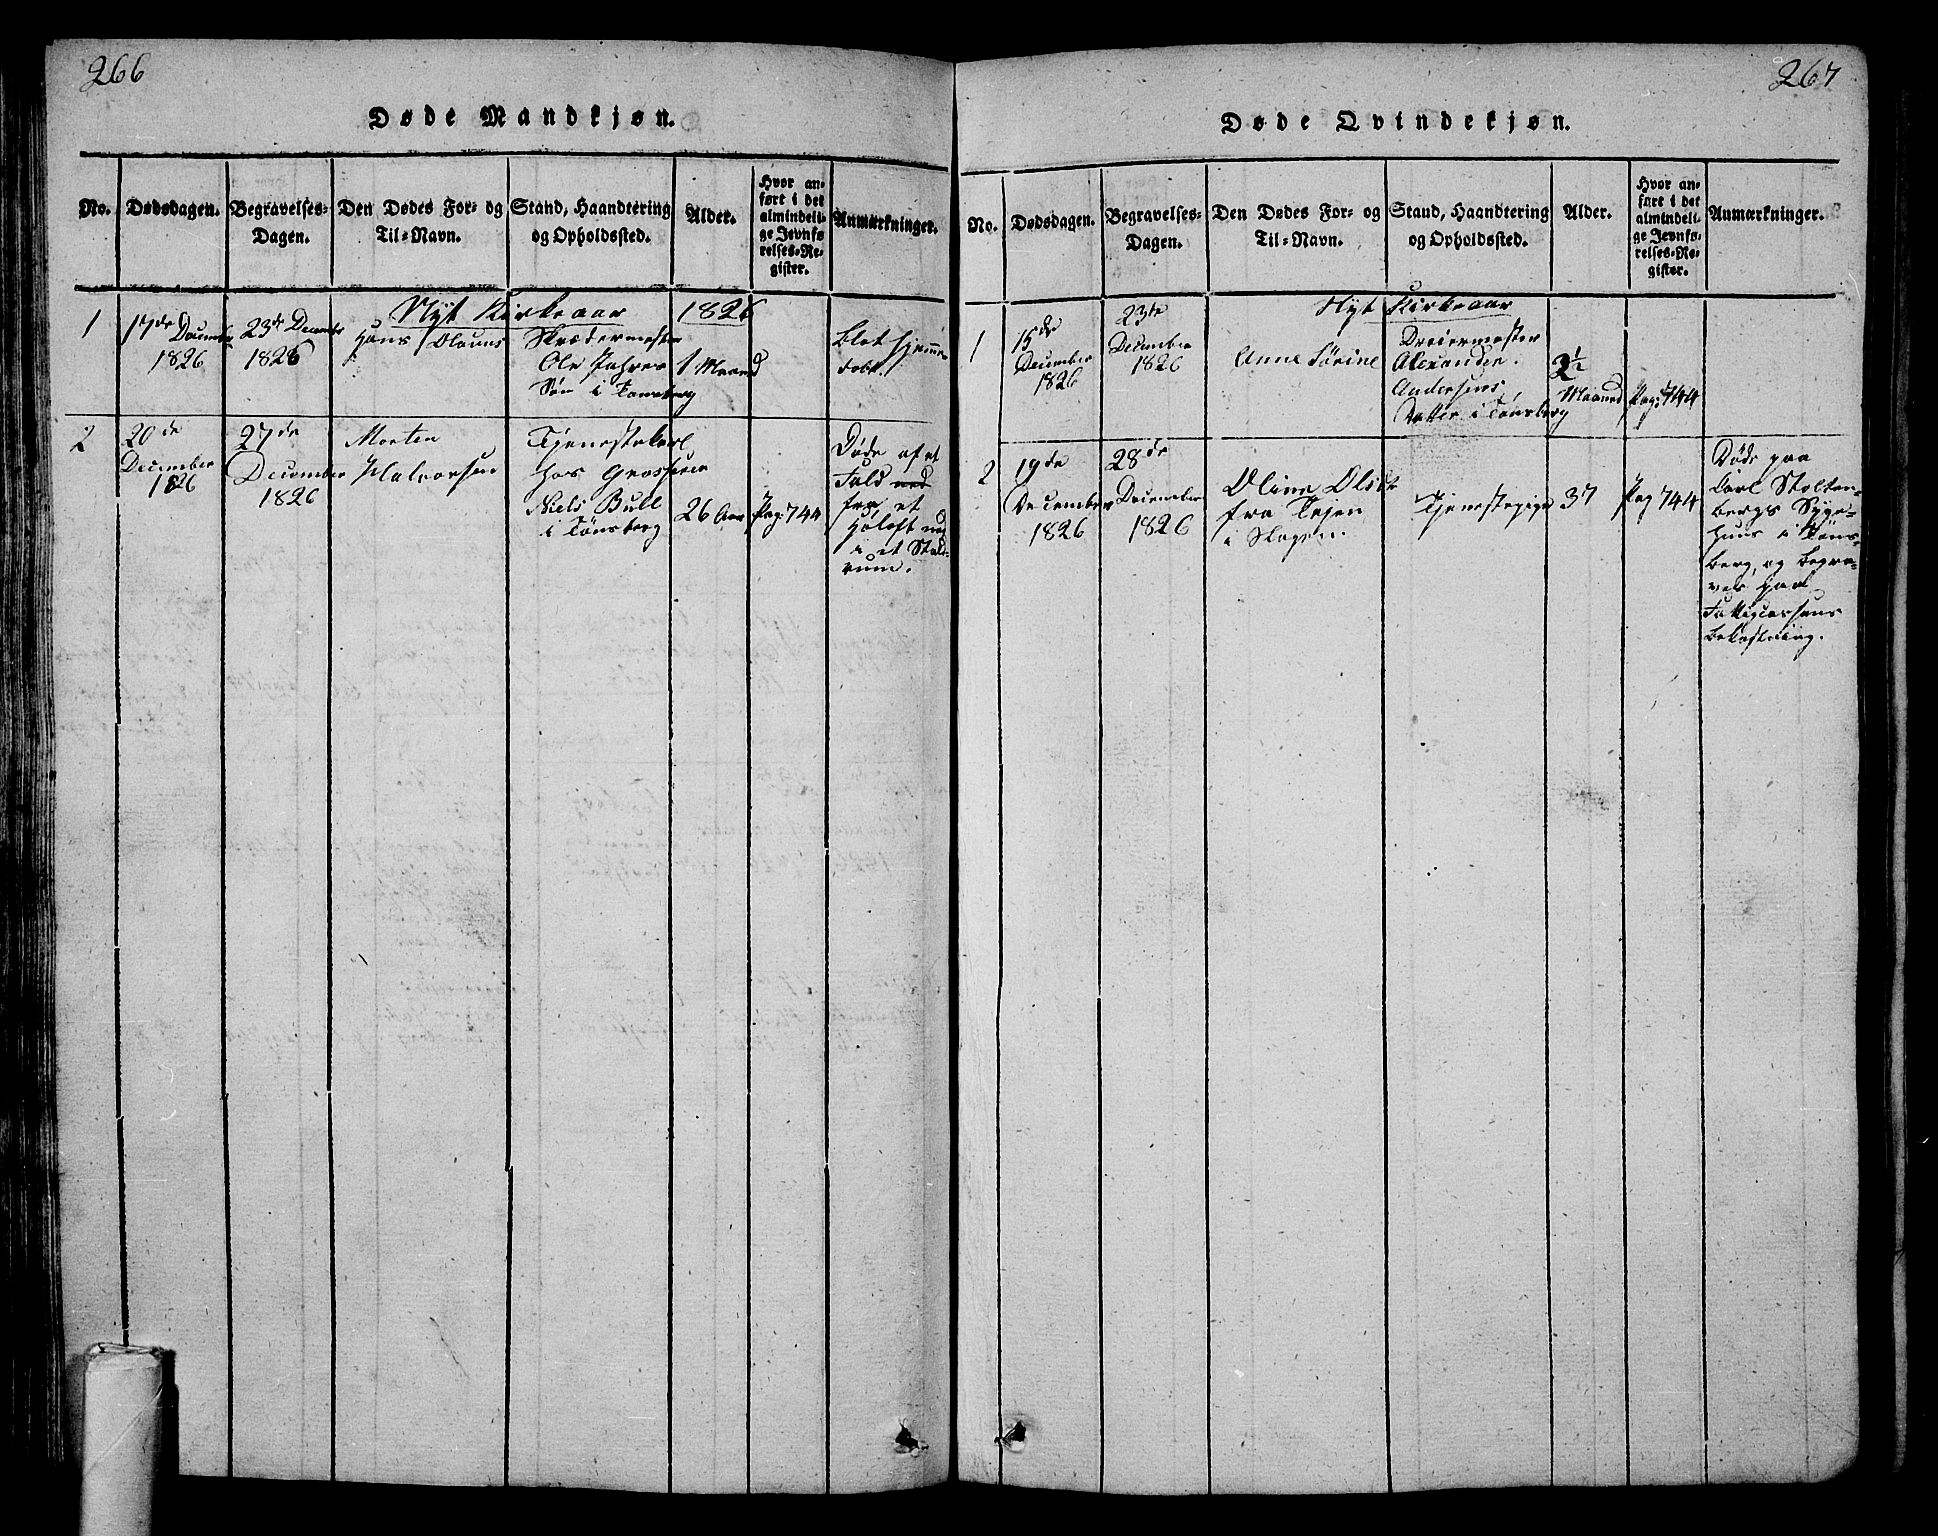 266
Døde Mandkjøn.
No.
Dødsdagen.
Begravelses-
Dagen.
Den Dødes For- og
Til-Navn.
Stand, Haandtering
og Opholdssted.
Alder.
Hvor an-
ført i det
almindeli-
ge Jevnfø
relses-Re
gister.
Anmærkninger.
Nyt Kirkeaar 1826
1
17de December
1826
23de December
1826
Hans Olaus
Skrædermester
Ole
Søn i Tønsberg
1 Maaned
Blot hjemme
døbt.
2
20de
December
1826
27de
December
1826
Morten
Halvorsen
Tjenestekarl
hos Grosserer
Niels Bull
i Tønsberg
26 Aar
Pag: 744
Døde af et
Fald ned
fra et
Høloft ned
i et Stald-
rum.
267
Døde Qvindekjøn.
No.
Dødsdagen.
Begravelses-
Dagen.
Den Dødes For- og
Til-Navn.
Stand, Haandtering
og Opholdssted.
Alder.
Hvor an-
ført i det
almindeli-
ge Jevnfø-
relses-Re-
gister.
Anmærkninger.
Nyt Kirkeaar
1
15de
December
1826
23de
December
1826
Anne Sørine
Dreiermester
Alexander
Andersens
Datter i Tønsberg
2½
Maaned
Pag: 744
2
19de
December
1826
28de
December
1826
Oline Olsdr
fra
i Slagen.
Tjenestepige
37
Pag 744
Døde paa
Carl Stolten-
bergs Syge-
huus i Tøns-
berg, og begra-
ves paa
Fattigcassens
Bekostning.